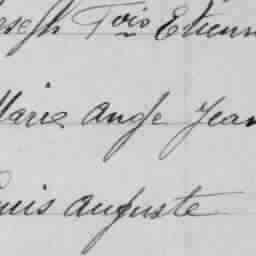 oseph Fois Etienn
Marie Ange Jean
ouis Auguste